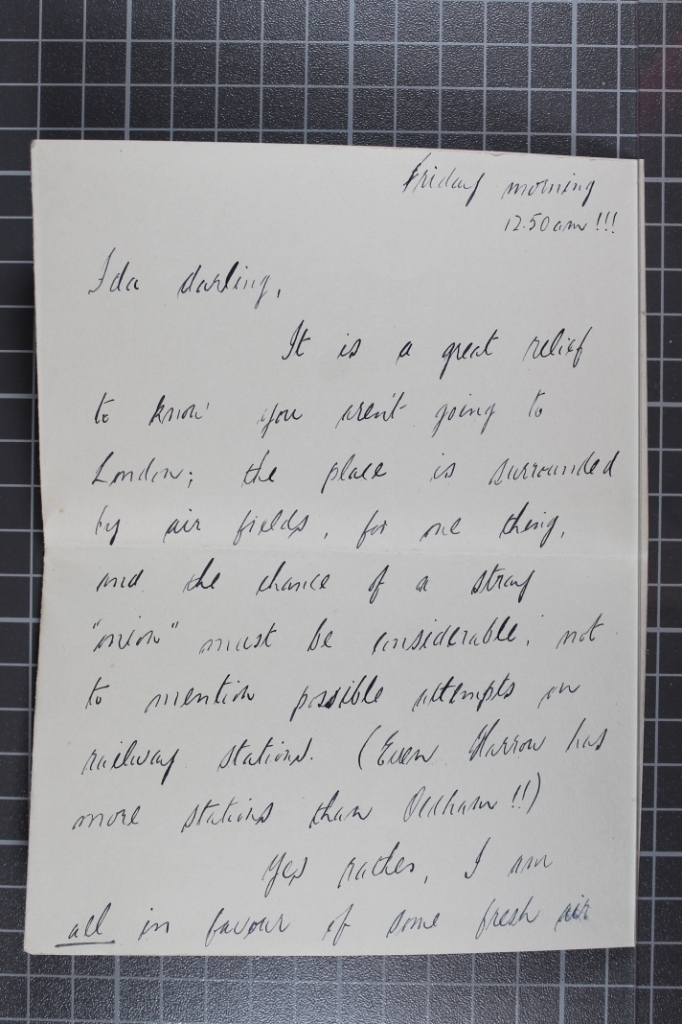 Friday morning
12.50am !!!
Ida darling,
It is a great relief
to know you aren't going to
London; the place is surrounded
by air fields, for one thing,
and the chance of a stray
"onion" must be considerable, not
to mention possible attempts on
railway stations. (Even Harrow has
more stations than Oldham !!)
Yes rather, I am
all in favour of some fresh air